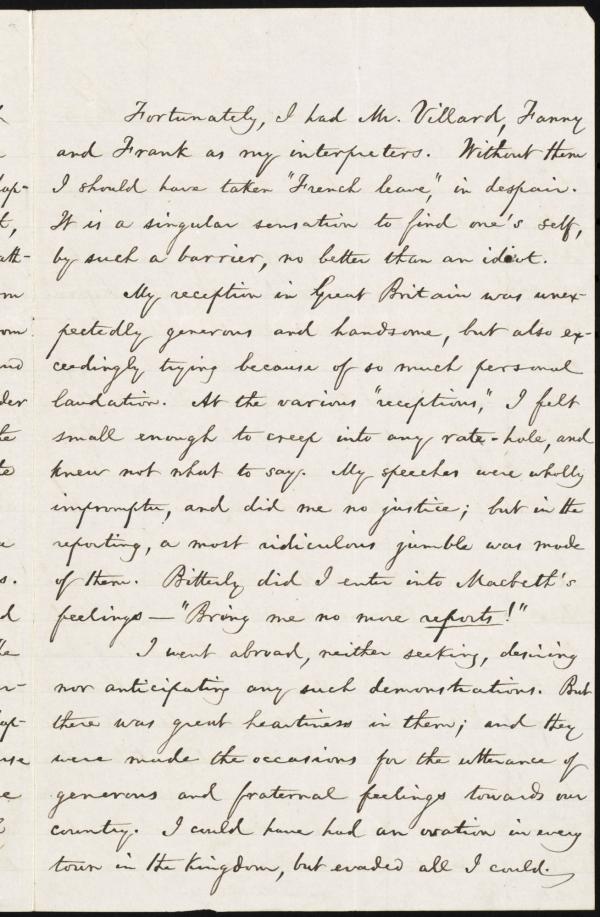 Fortunately, I had Mr. Villard, Fanny
and Frank as my interpreters. Without them
I should have taken "French leave," in despair.
It is a singular sensation to find one's self,
by such a barrier, no better than an idiot.
My reception in Great Britain was unex-
pectedly generous and handsome, but also ex-
ceedingly trying because of so much personal
laudation. At the various "receptions," I felt
small enough to creep into any rate-hole, and
knew not what to say. My speeches were wholly
impromptu, and did me no justice; but in the
reporting, a most ridiculous jumble was made
of them. Bitterly did I enter into Macbeth's
feelings — "Bring me no more reports!"
I went abroad, neither seeking, desiring
nor anticipating any such demonstrations. But
there was great heartiness in them; and they
were made the occasions for the utterance of
generous and fraternal feelings towards our
country. I could have had an ovation in every
town in the kingdom, but evaded all I could.